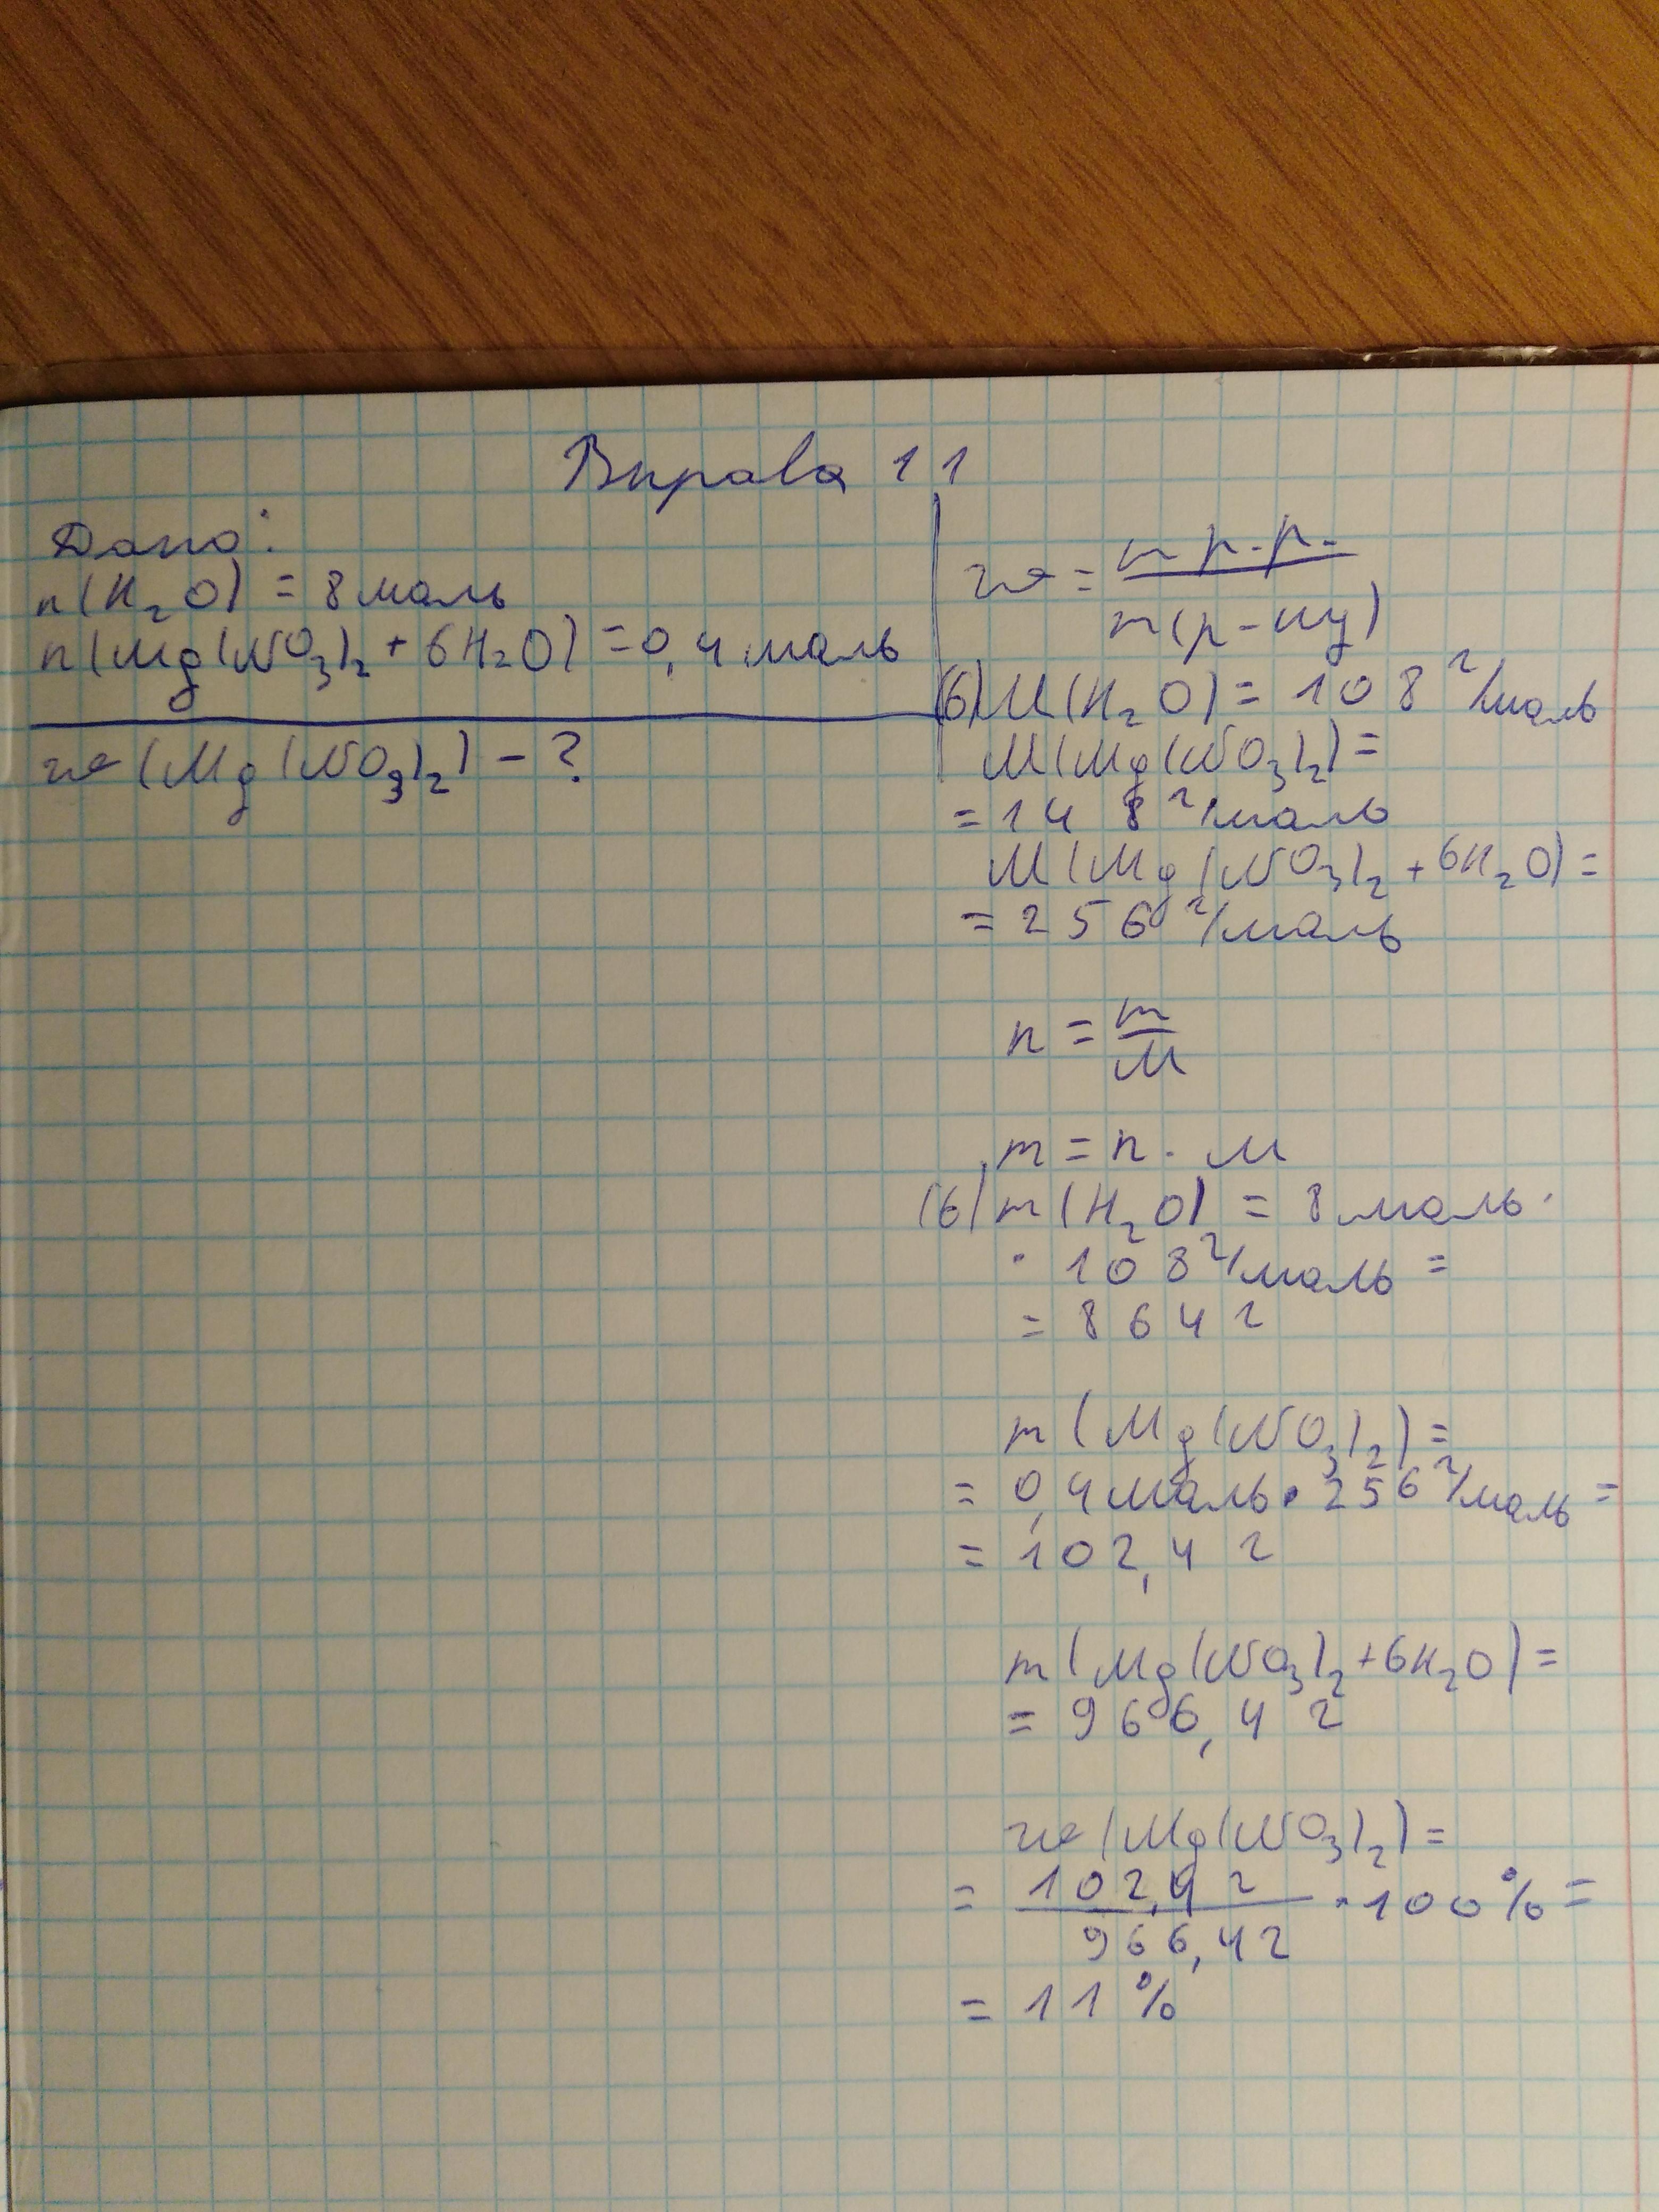 Вправа 11
Дано:
n(H₂O) = 8 моль
n(Mg(NO₃)₂ + 6H₂O) = 0,4 моль
w(Mg(NO₃)₂) - ?
w = m р.р. / m(р-ну)
(6)M(H₂O) = 108 г/моль
M(Mg(NO₃)₂) =
= 148 г/моль
M(Mg(NO₃)₂ + 6H₂O) =
= 256 г/моль
n = m / M
m = n · M
(6)m(H₂O) = 8 моль ·
· 108 г/моль =
= 864 г
m(Mg(NO₃)₂) =
= 0,4 моль · 256 г/моль =
= 102,4 г
m(Mg(NO₃)₂+6H₂O) =
= 966,4 г
w(Mg(NO₃)₂) =
= 102,4 г / 966,4 г · 100% =
= 11%